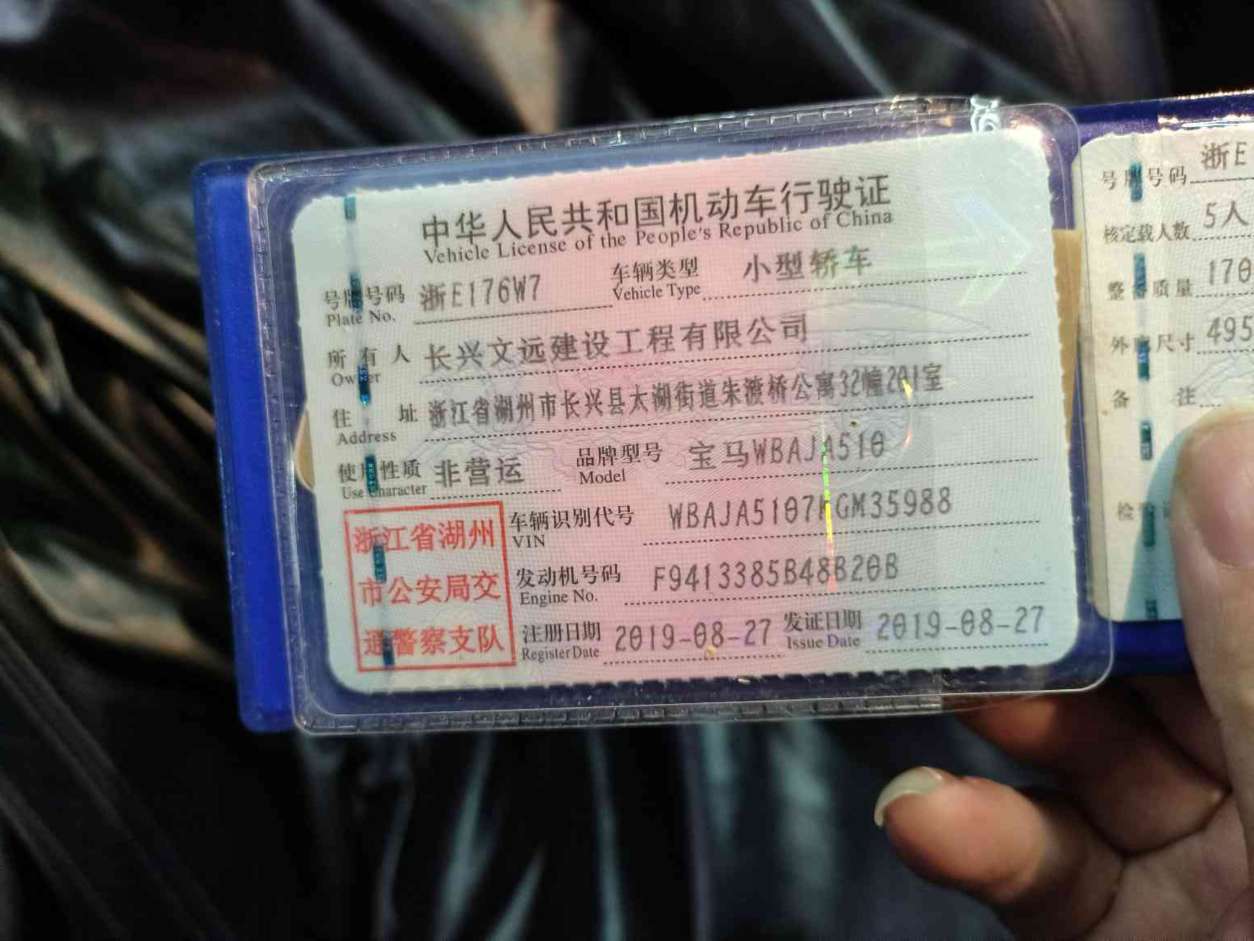 中华人民共和国机动车行驶证
Vehicle License of the People's Republic of China
号牌号码 浙E176W7 车辆类型 小型轿车
Plate No. Vehicle Type
所有人 长兴文远建设工程有限公司
Owner
住址 浙江省湖州市长兴县太湖街道朱渡桥公寓32幢201室
Address
使用性质 非营运 品牌型号 宝马WBAJA510
Use Character Model
浙江省湖州
市公安局交
通警察支队
车辆识别代号 WBAJA5107KGM35988
VIN
发动机号码 F9413385B48B20B
Engine No.
注册日期 2019-08-27 发证日期 2019-08-27
Register Date Issue Date
号牌号码 浙E
核定载人数 5人
整备质量 170
外廓尺寸 495
备注
检